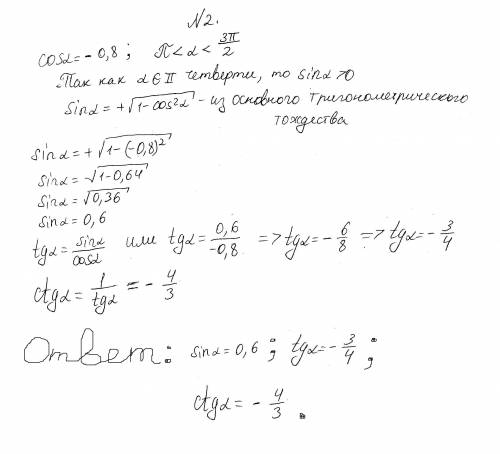 N2.
cosα = -0,8 ; π < α < 3π/2
Так как α ∈ II четверти, то sinα > 0
sinα = +√(1-cos²α) - из основного тригонометрического
тождества
sinα = +√(1-(-0,8)²)
sinα = √(1-0,64)
sinα = √0,36
sinα = 0,6
tgα = sinα/cosα или tgα = 0,6/-0,8 => tgα = -6/8 => tgα = -3/4
ctgα = 1/tgα = -4/3
Ответ: sinα = 0,6 ; tgα = -3/4 ;
ctgα = -4/3 .